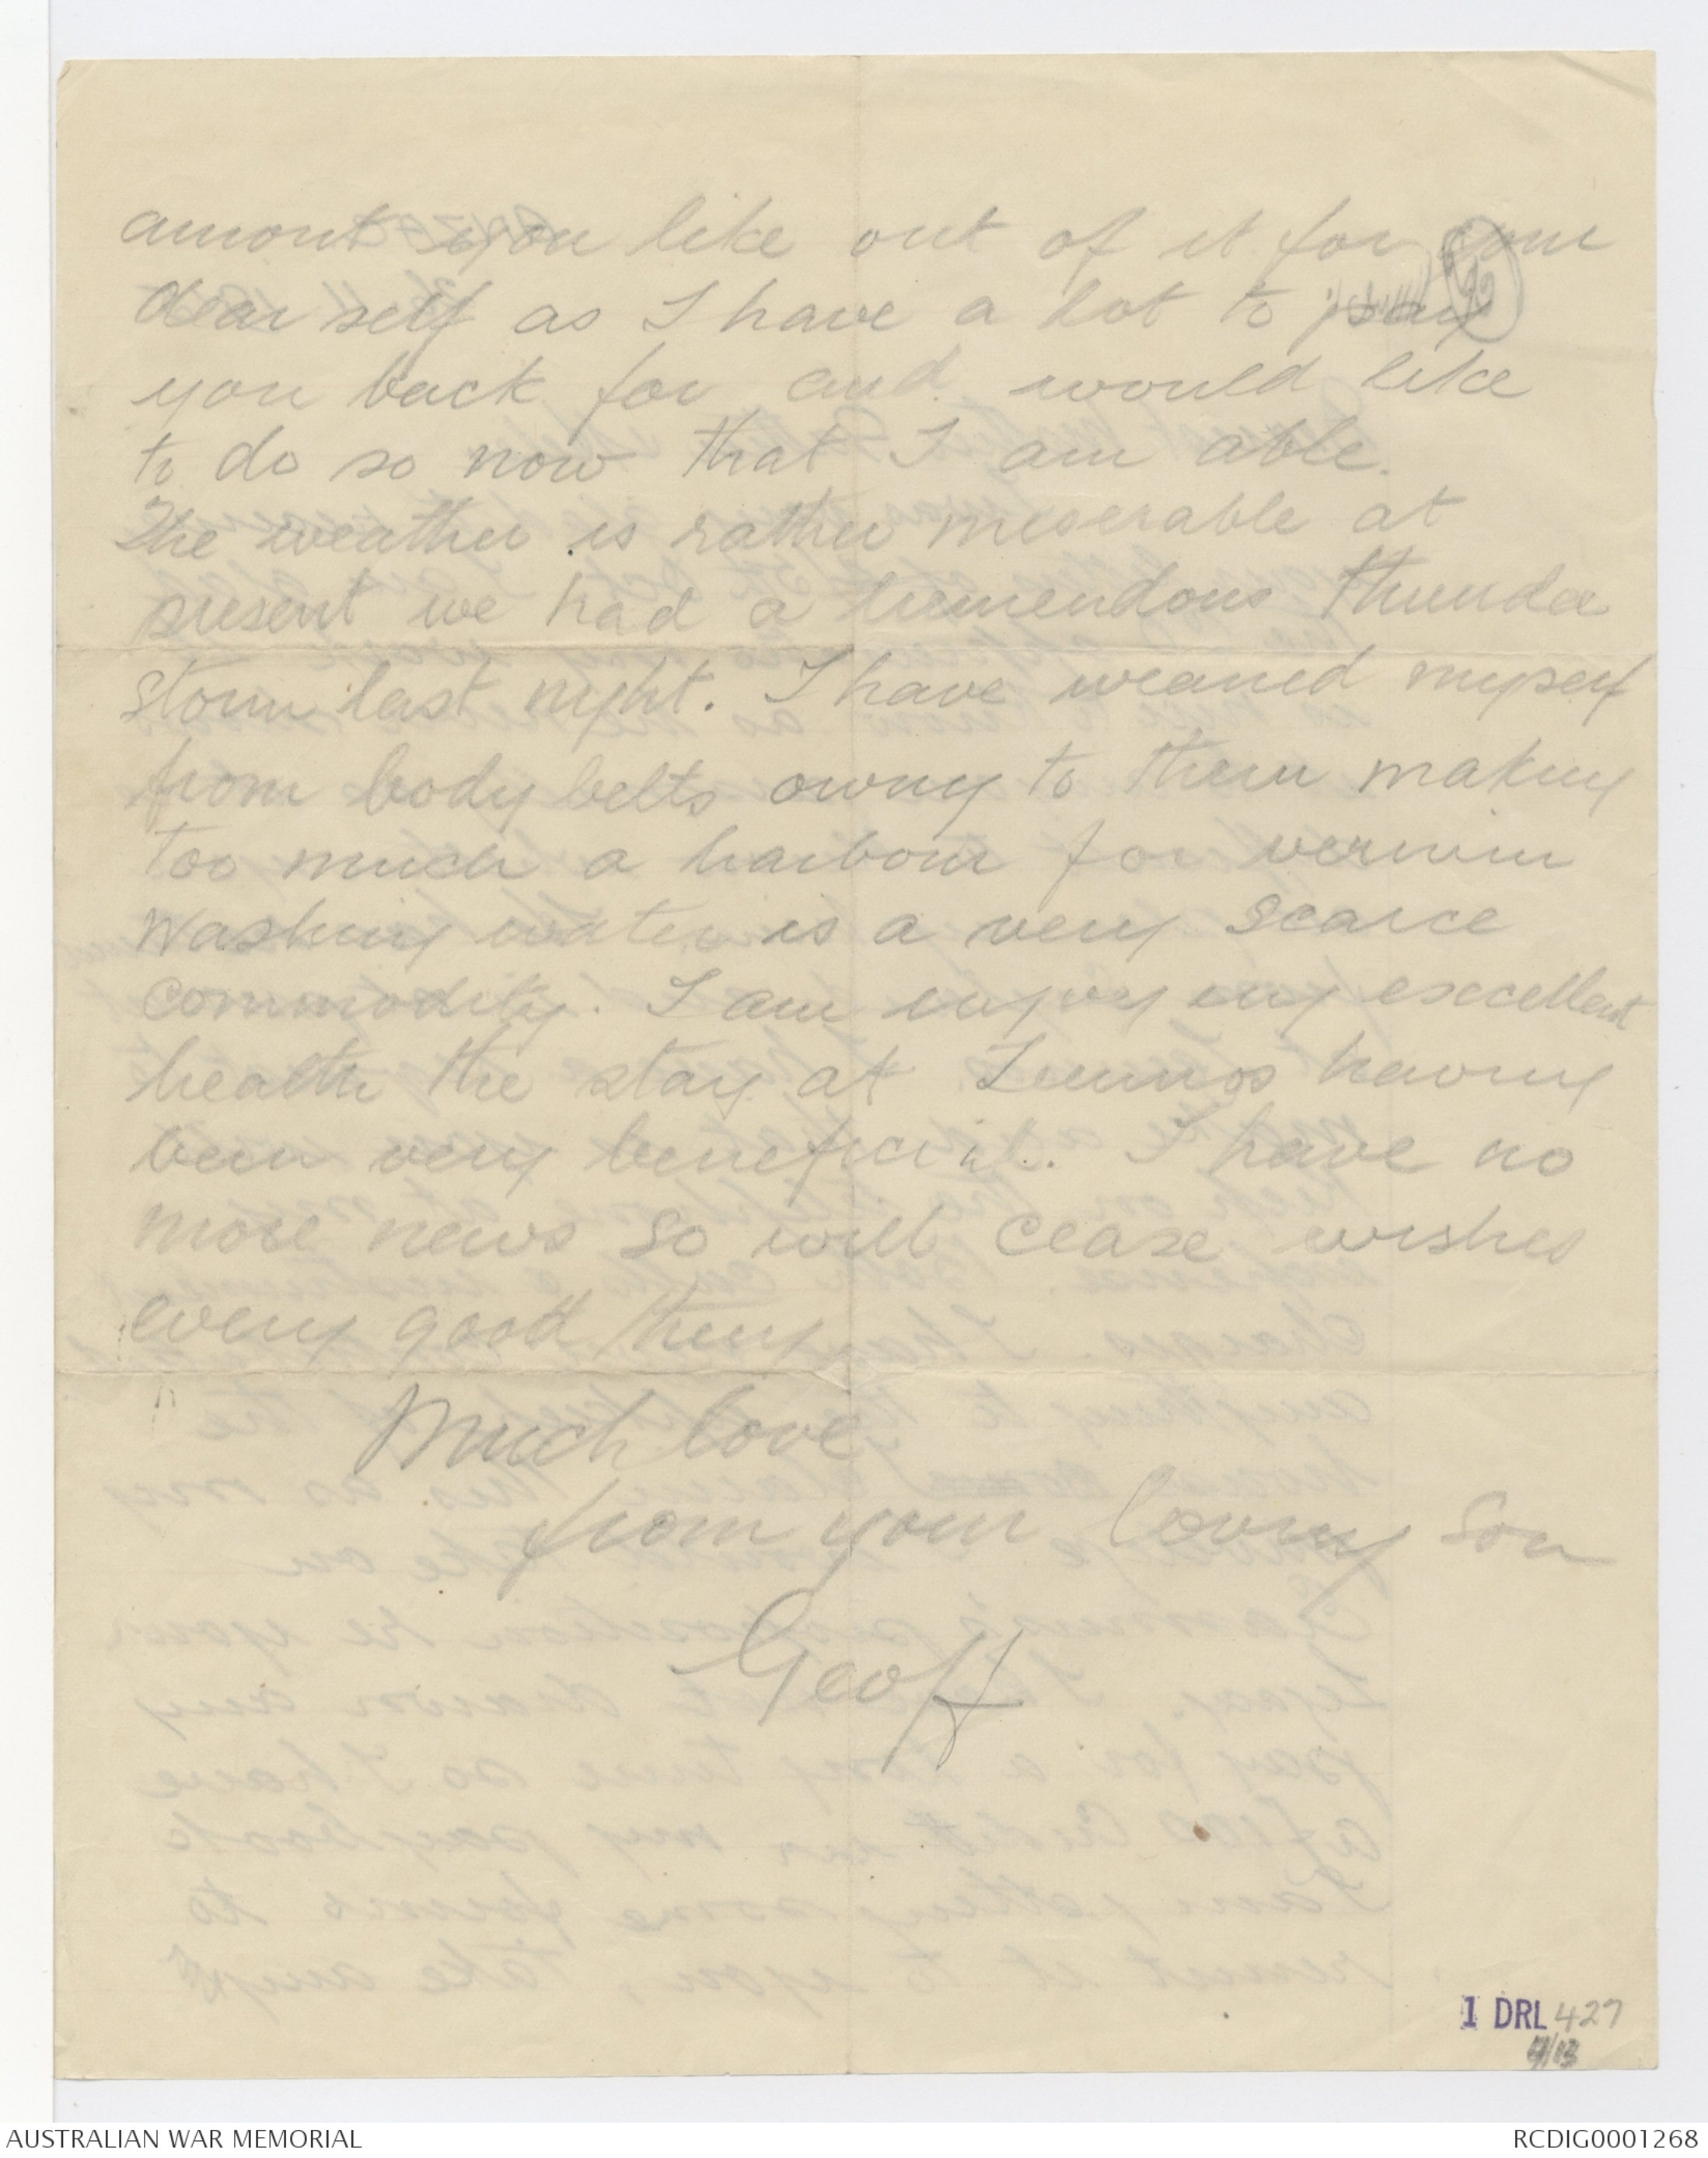 amont you like out of it for your
dear self as I have a lot to pay
you back for and would like
to do so now that I am able.
The weather is rather miserable at
present we had a tremendous thunder
storm last night. I have weaned myself
from body belts owing to them making
too much a harbour for vermin
washing water is a very scarce
commodity. I am enjoying excellent
health the stay at Lemnos having
been very beneficial. I have no
more news so will cease wishes
every good thing
Much love
from your loving son
Geoff
1 DRL 427
AUSTRALIAN WAR MEMORIAL
RCDIG0001268